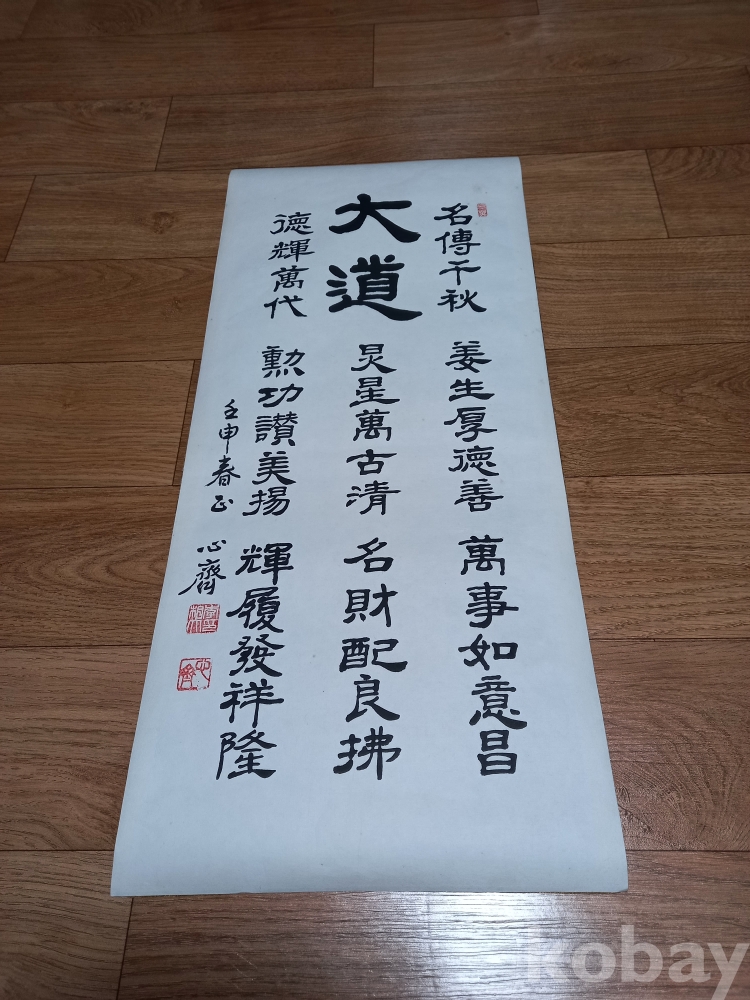 名傳千秋 姜生厚德善 萬事如意昌
大道 炅星萬古清 名財配良拂
德輝萬代 勲功讚美揚 輝履發祥隆
壬申春正 心齋
kobay